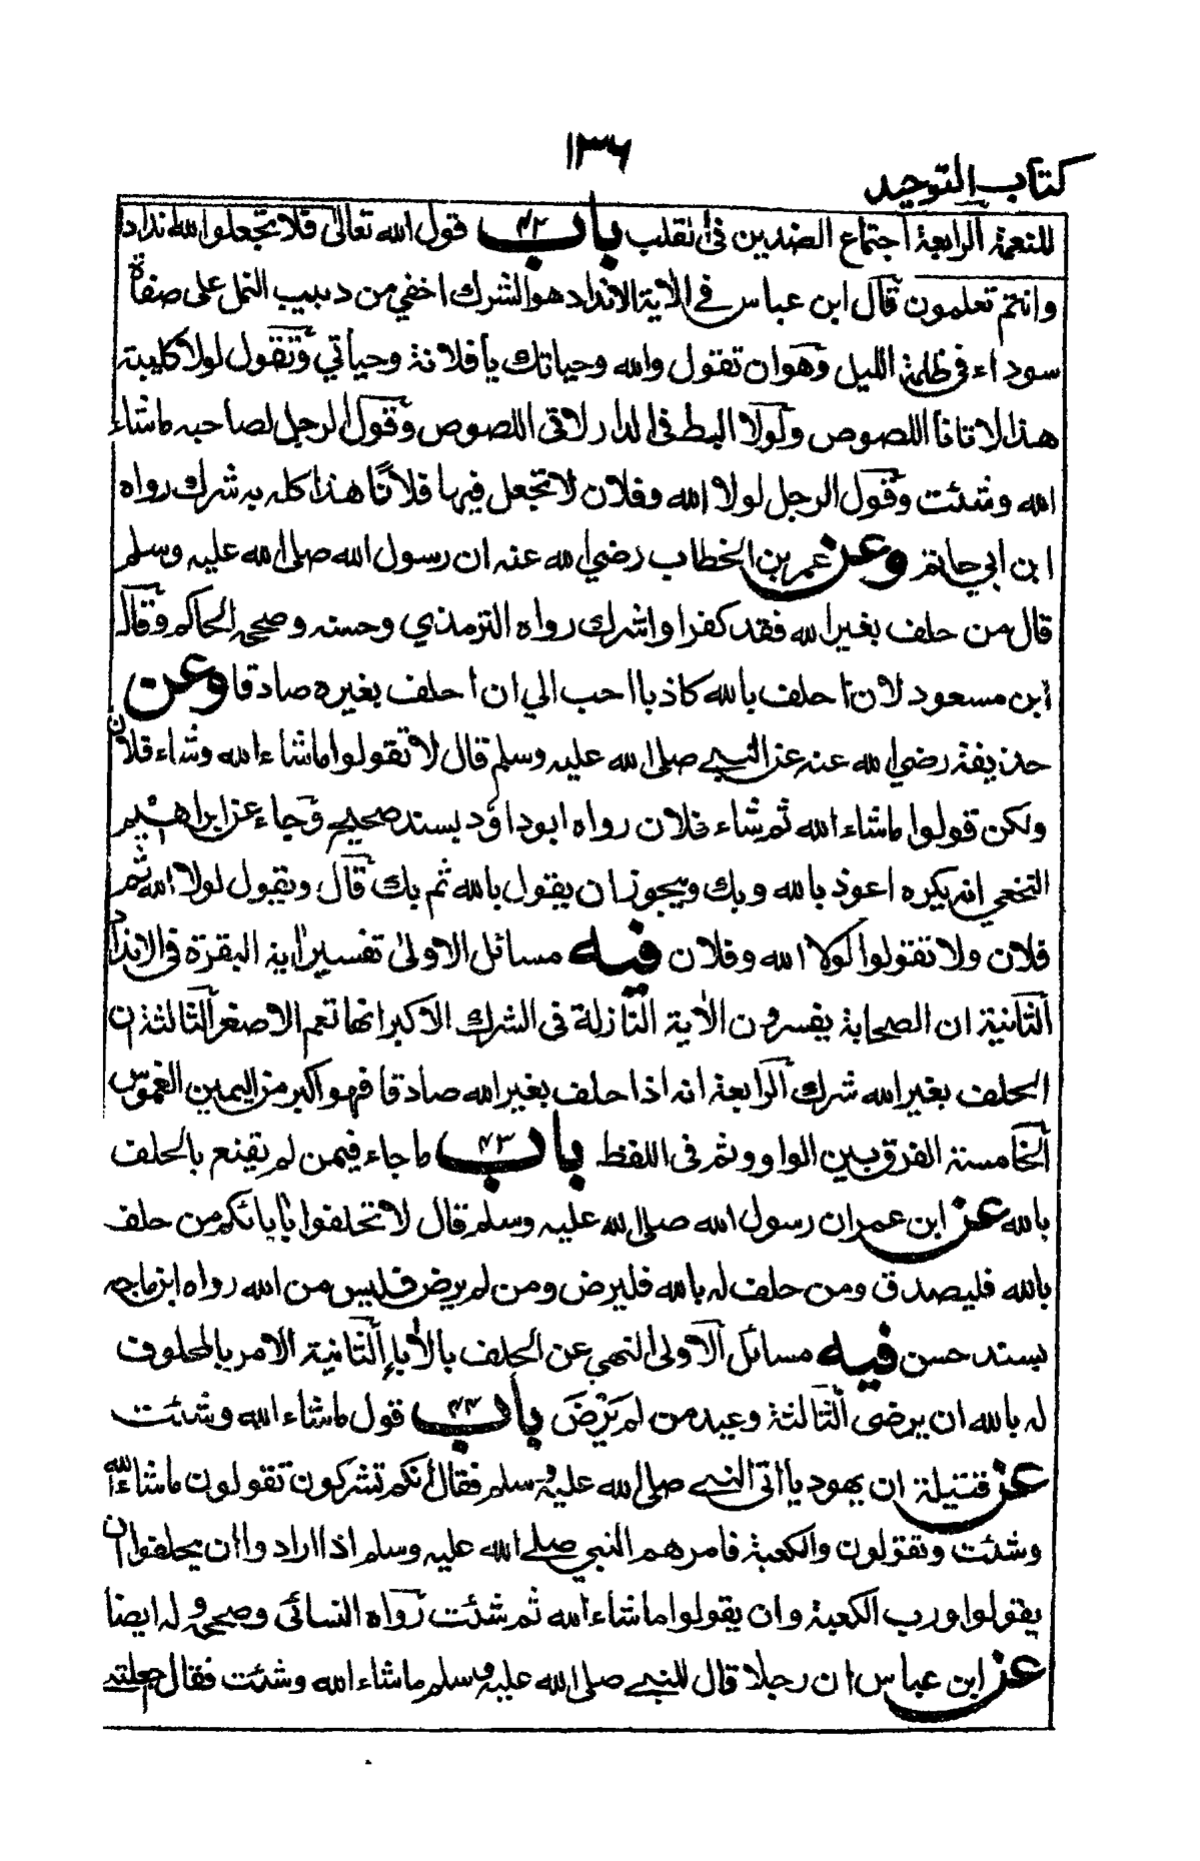 ١٣٦
كتاب التوحيد
للنعمة الرابعة اجتماع الضدين في القلب باب ٤٢ قول الله تعالى فلا تجعلوا لله اندادا
وانتم تعلمون قال ابن عباس في الاية الانداد هو الشرك اخفي من دبيب النمل على صفاة
سوداء في ظلمة الليل وهو ان تقول والله وحياتك يا فلانة وحياتي وتقول لولا كليبة
هذا لاتانا اللصوص ولولا البط في الدار لاتى اللصوص وقول الرجل لصاحبه ماشاء
الله وشئت وقول الرجل لولا الله وفلان لا تجعل فيها فلانًا هذا كله به شرك رواه
ابن ابي حاتم وعن عمر بن الخطاب رضي الله عنه ان رسول الله صلى الله عليه وسلم
قال من حلف بغير الله فقد كفر او اشرك رواه الترمذي وحسنه وصححه الحاكم وقال
ابن مسعود لان احلف بالله كاذبا احب الي ان احلف بغيره صادقا وعن
حذيفة رضي الله عنه عن النبي صلى الله عليه وسلم قال لا تقولوا ماشاء الله وشاء فلان
ولكن قولوا ماشاء الله ثم شاء فلان رواه ابوداؤد بسند صحيح وجاء عن ابراهيم
النخعي انه يكره اعوذ بالله وبك ويجوز ان يقول بالله ثم بك قال ويقول لولا الله ثم
فلان ولا تقولوا لولا الله وفلان فيه مسائل الاولى تفسير اية البقرة في الانداد
الثانية ان الصحابة يفسرون الاية النازلة في الشرك الاكبر انها تعم الاصغر الثالثة ان
الحلف بغير الله شرك الرابعة انه اذا حلف بغير الله صادقا فهو اكبر من اليمين الغموس
الخامسة الفرق بين الواو وثم في اللفظ باب ٤٣ ماجاء فيمن لم يقنع بالحلف
بالله عن ابن عمر ان رسول الله صلى الله عليه وسلم قال لا تحلفوا بابائكم من حلف
بالله فليصدق ومن حلف له بالله فليرض ومن لم يرض فليس من الله رواه ابن ماجه
بسند حسن فيه مسائل الاولى النهي عن الحلف بالاباء الثانية الامر بالمحلوف
له بالله ان يرضى الثالثة وعيد من لم يَرْضَ باب ٤٤ قول ماشاء الله وشئت
عن قتيلة ان يهوديا اتى النبي صلى الله عليه وسلم فقال انكم تشركون تقولون ماشاء الله
وشئت وتقولون والكعبة فامرهم النبي صلى الله عليه وسلم اذا ارادوا ان يحلفوا ان
يقولوا ورب الكعبة وان يقولوا ماشاء الله ثم شئت رواه النسائى وصححه وله ايضا
عن ابن عباس ان رجلا قال للنبي صلى الله عليه وسلم ماشاء الله وشئت فقال اجعلتني